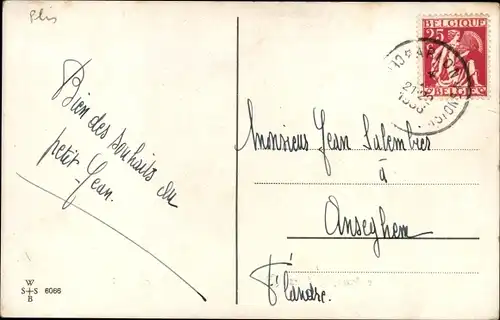 Plis
BELGIQUE
25
BELGIË
Bien des souhaits du
petit Jean.
Monsieur Jean Salembier
à
Anseghem
Flandre.
W
S+S 6066
B